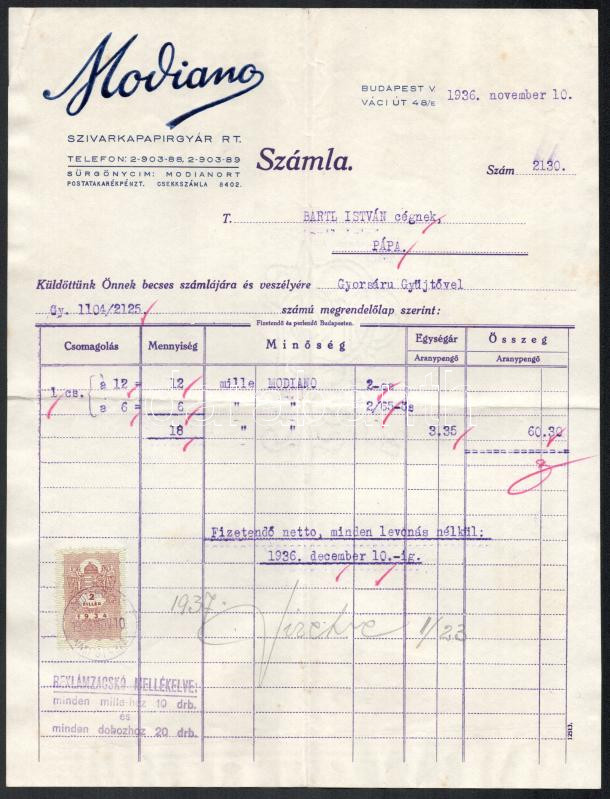 Modiano
SZIVARKAPAPIRGYÁR RT.
TELEFON: 2-903-88, 2-903-89
SÜRGÖNYCIM: MODIANORT
POSTATAKARÉKPÉNZT. CSEKKSZÁMLA 8402.
BUDAPEST V.
VÁCI ÚT 48/E
1936. november 10.
Számla.
Szám 2130.
T. BARTL ISTVÁN cégnek,
PÁPA.
Küldöttünk Önnek becses számlájára és veszélyére Gyorsáru Gyüjtővel
Gy. 1104/2125. számú megrendelőlap szerint:
Fizetendő és perlendő Budapesten.
Csomagolás Mennyiség Minőség Egységár Összeg
Aranypengő Aranypengő
1 cs. à 12 = 12 mille MODIANO 2-es
a 6 = 6 " " 2/65-ös
18 " " 3.35 60.30
Fizetendő netto, minden levonás nélkül:
1936. december 10.-ig.
2
FILLÉR
1934
1937. 1/23
REKLÁMZACSKÓ MELLÉKELVE:
minden mille-hez 10 drb.
és
minden dobozhoz 20 drb.
12913.